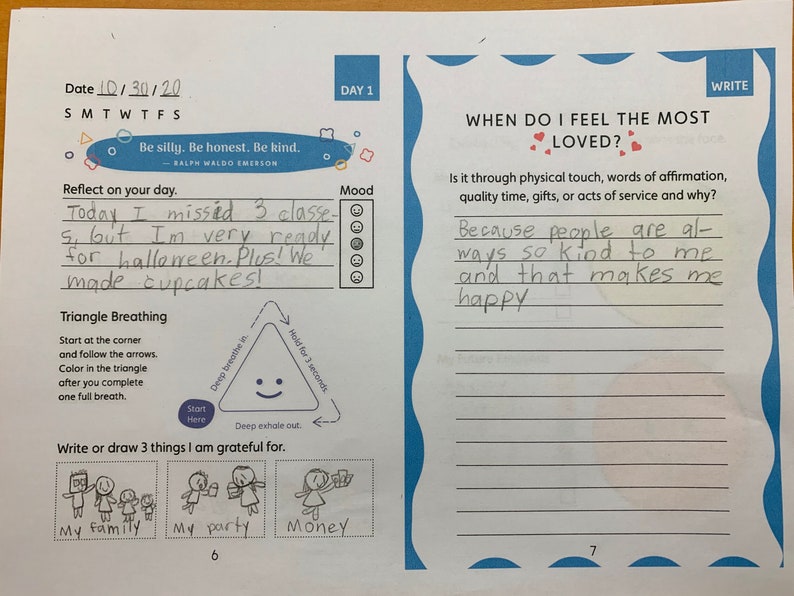 Date 10 / 30 / 20
DAY 1
S M T W T F S
Be silly. Be honest. Be kind.
— RALPH WALDO EMERSON
Reflect on your day.
Mood
Today I missid 3 classe-
s, but Im very ready
for halloween. Plus! We
made cupcakes!
Triangle Breathing
Start at the corner
and follow the arrows.
Color in the triangle
after you complete
one full breath.
Start
Here
Deep breathe in.
Hold for 3 seconds.
Deep exhale out.
Write or draw 3 things I am grateful for.
My family
My party
Money
6
WRITE
WHEN DO I FEEL THE MOST
LOVED?
Is it through physical touch, words of affirmation,
quality time, gifts, or acts of service and why?
Because people are al-
ways so kind to me
and that makes me
happy
7